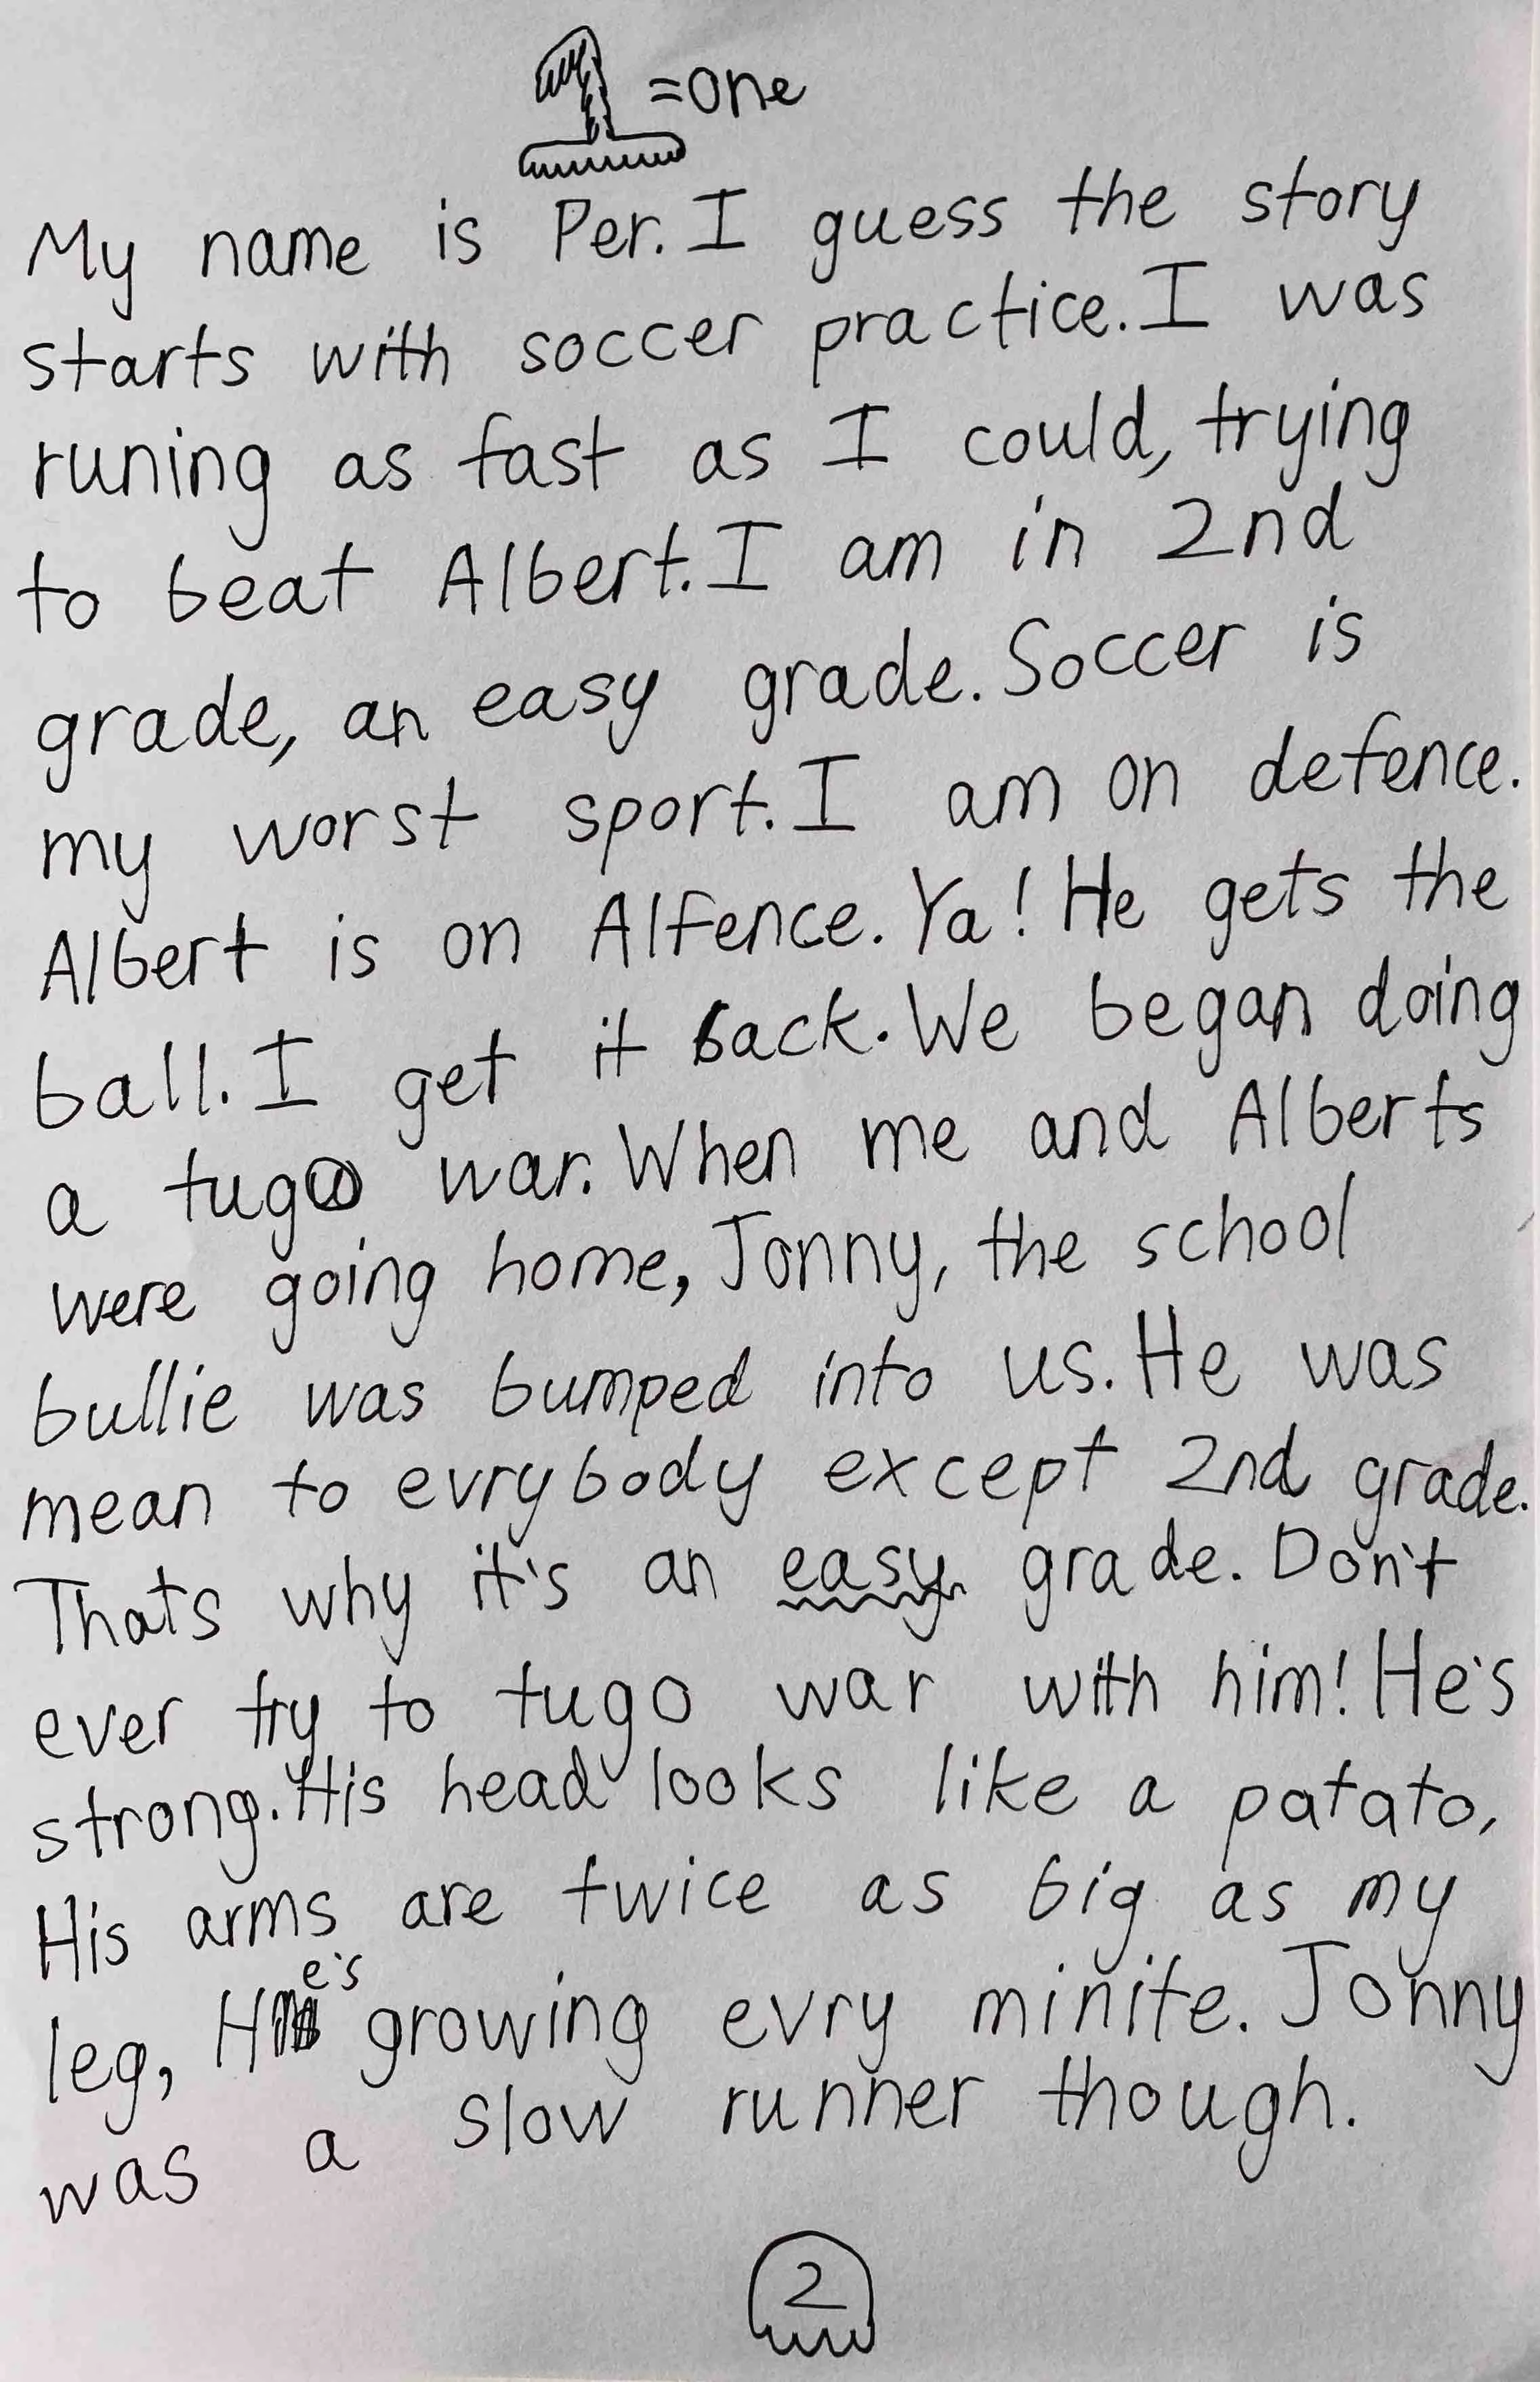 =one
My name is Per. I guess the story
starts with soccer practice. I was
runing as fast as I could, trying
to beat Albert. I am in 2nd
grade, an easy grade. Soccer is
my worst sport. I am on defence.
Albert is on Alfence. Ya! He gets the
ball. I get it back. We began doing
a tugo war. When me and Alberts
were going home, Jonny, the school
bullie was bumped into us. He was
mean to evrybody except 2nd grade.
Thats why it's an easy grade. Don't
ever try to tugo war with him! He's
strong. His head looks like a patato,
His arms are twice as big as my
leg, He's growing evry minite. Jonny
was a slow runner though.
2